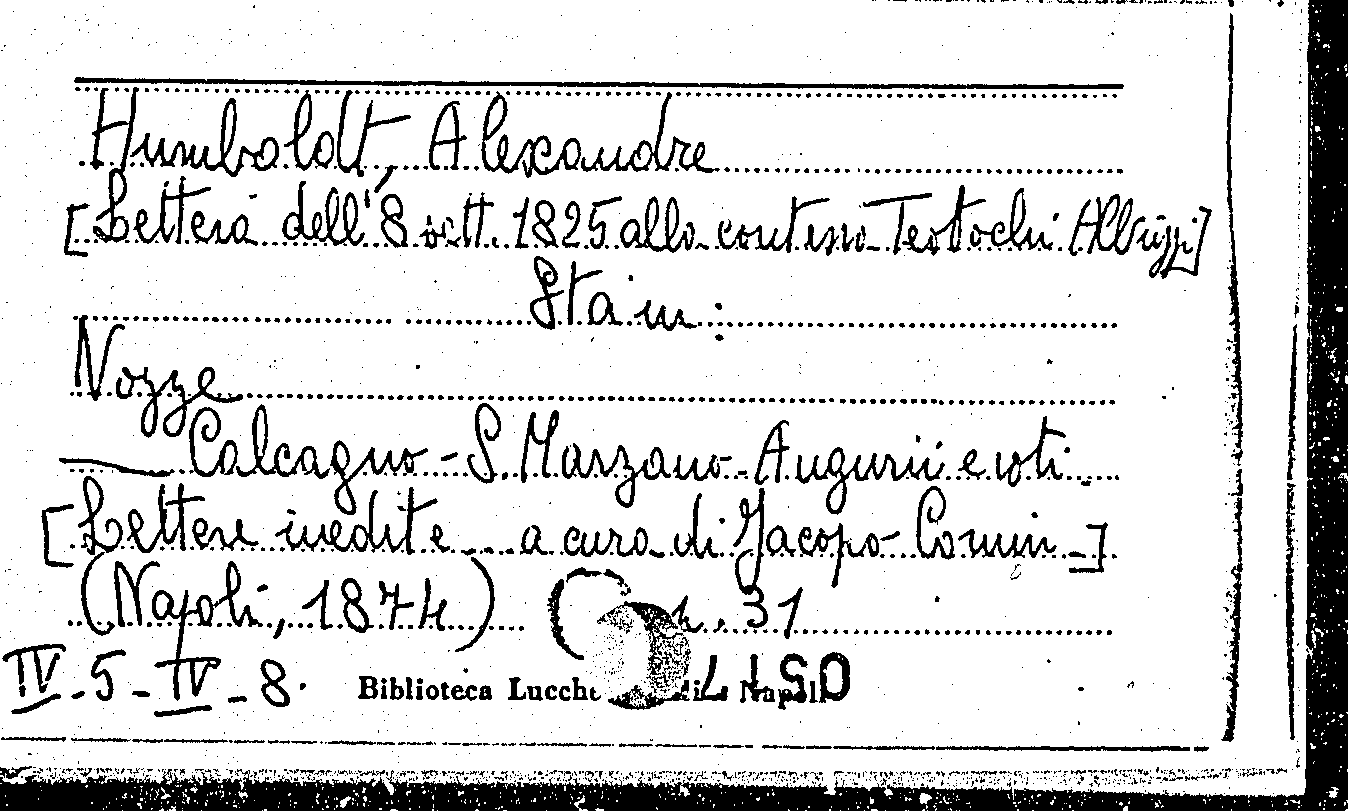 Humboldt, Alexandre
[Lettera dell'8 sett. 1825 alla contessa Teotochi Albrizzi]
Sta in:
Nozze
Calcagno - S. Marzano - Augurii e voti.
[Lettere inedite ... a cura di Jacopo Comin -]
(Napoli, 1874) 31
IV - 5 - IV - 8.
Biblioteca Napoli